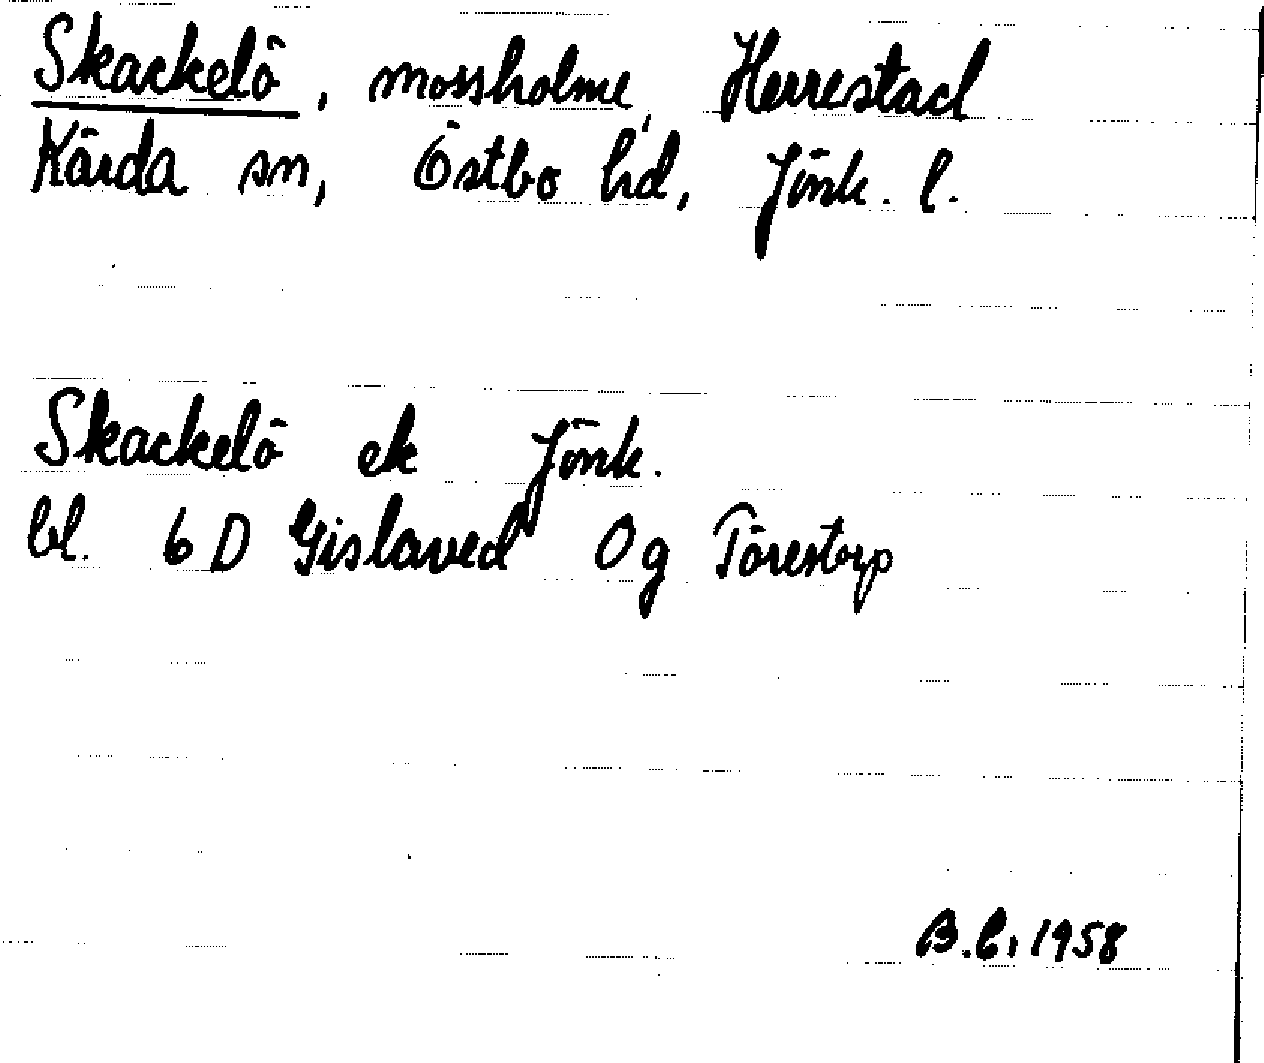 Skackelö, mossholme, Herrestad
Kärda sn, Östbo hd, Jönk. l.
Skackelö ek Jönk.
bl. 6 D Gislaved 0 g Törestorp
B.E. 1958